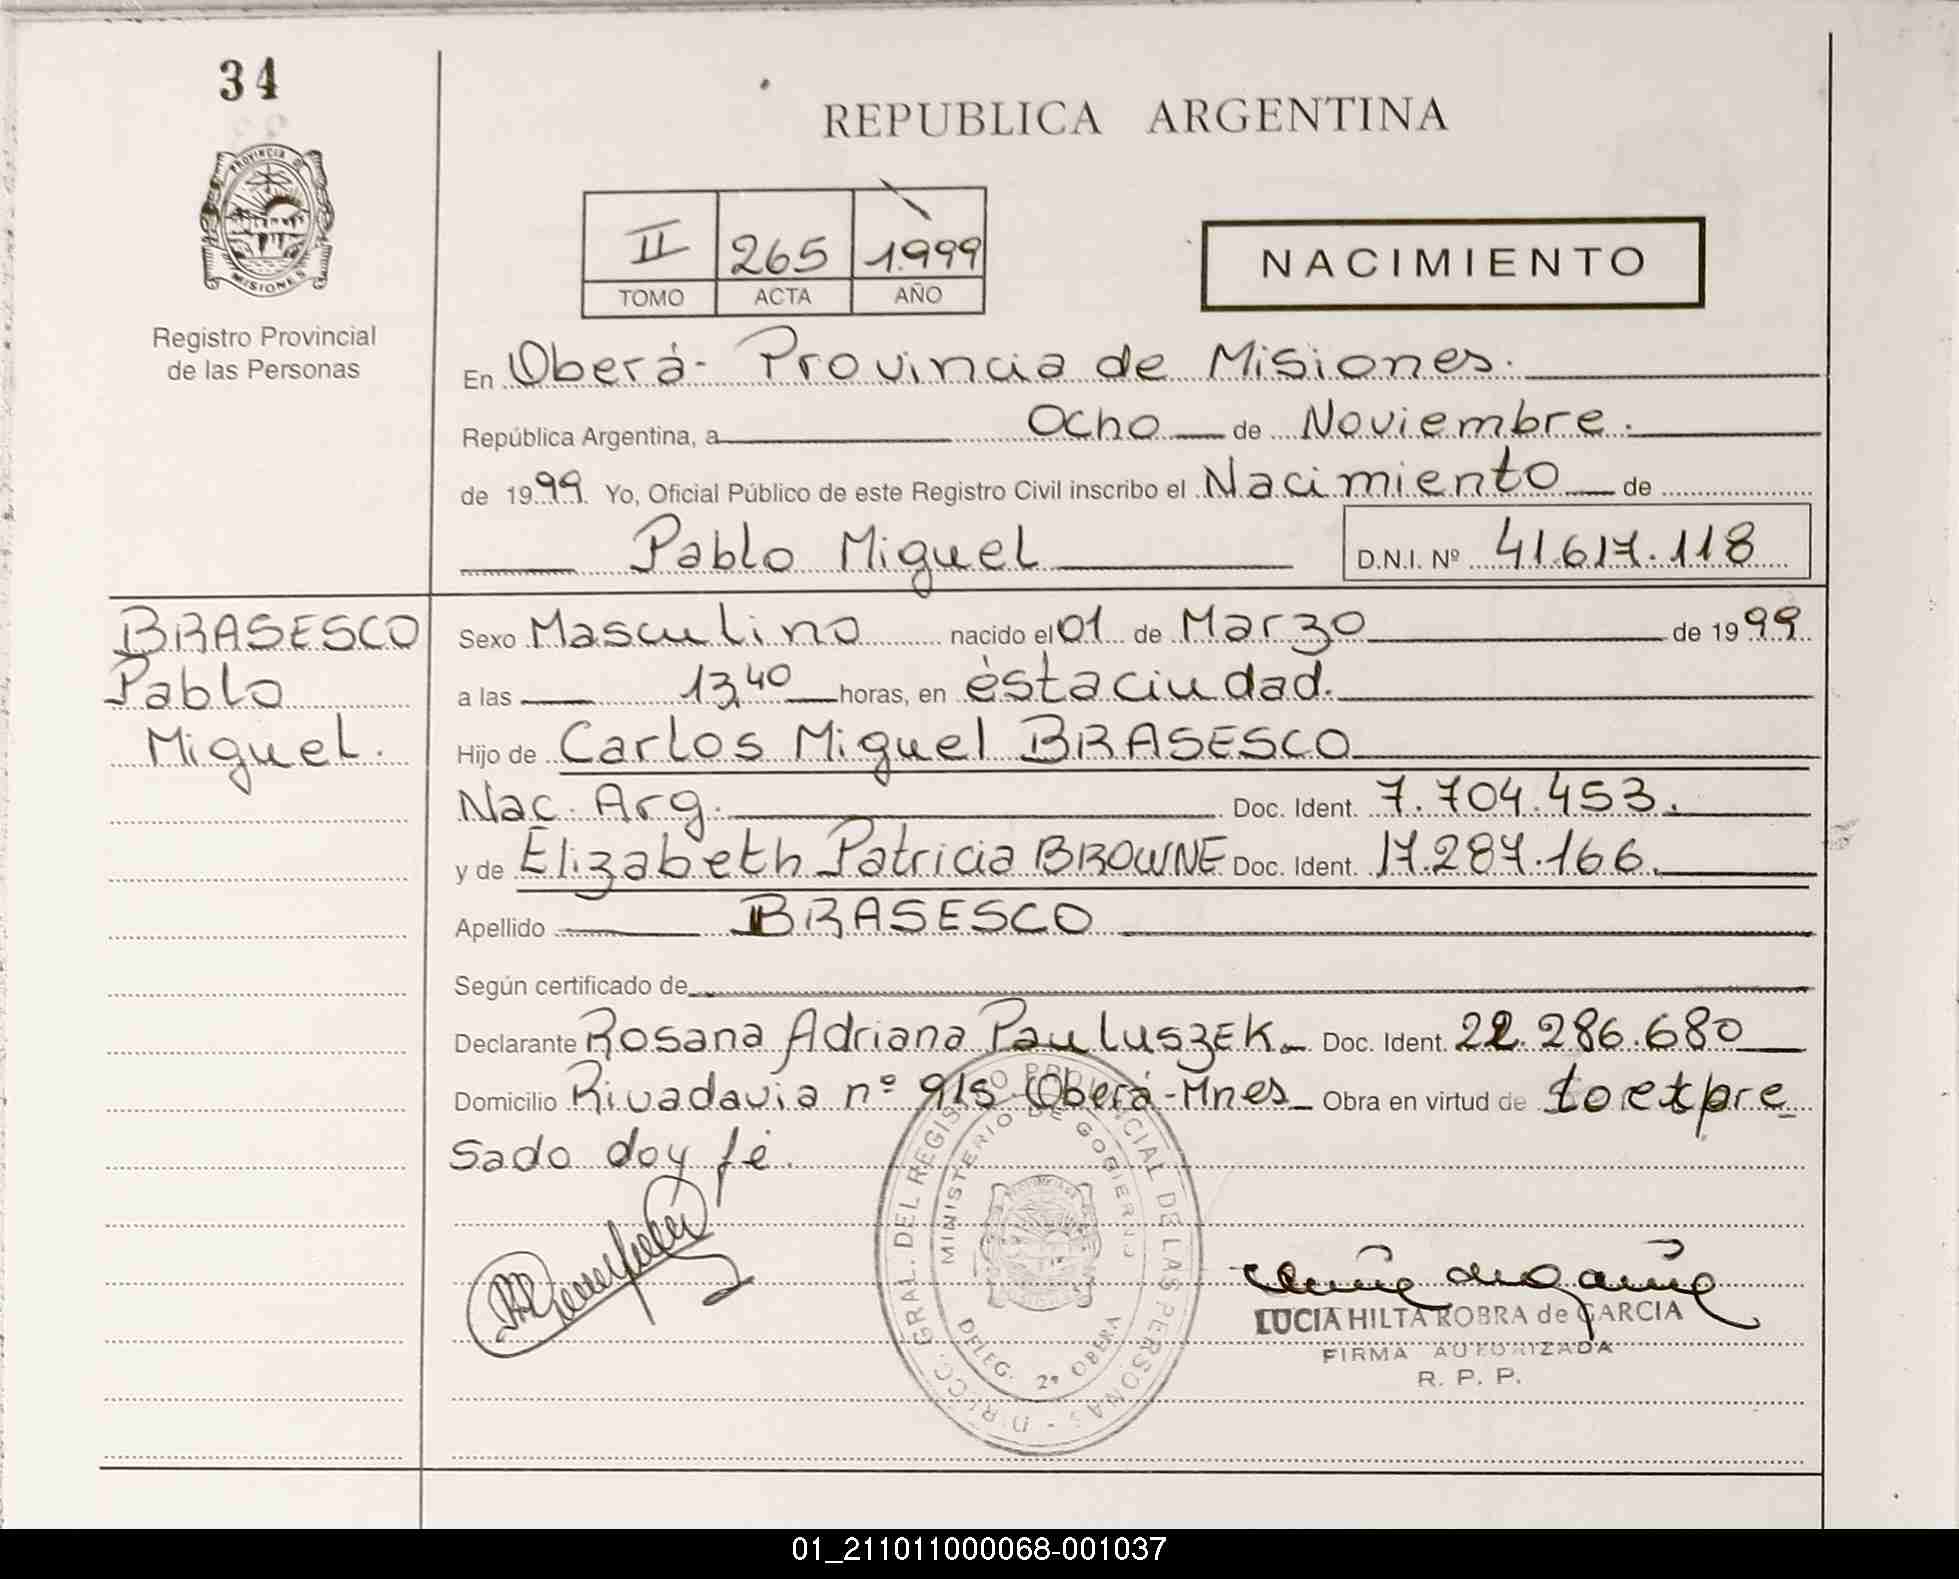 34
PROVINCIA D
MISIONES
Registro Provincial
de las Personas
REPUBLICA ARGENTINA
II 265 1.999
TOMO ACTA AÑO
NACIMIENTO
En Oberá- Provincia de Misiones.
República Argentina, a Ocho de Noviembre.
de 1999 Yo, Oficial Público de este Registro Civil inscribo el Nacimiento de
Pablo Miguel D.N.I. Nº 41.617.118
BRASESCO
Pablo
Miguel.
Sexo Masculino nacido el 01 de Marzo de 1999
a las 13,40 horas, en ésta ciudad.
Hijo de Carlos Miguel BRASESCO
Nac. Arg. Doc. Ident. 7.704.453.
y de Elizabeth Patricia BROWNE Doc. Ident. 17.287.166.
Apellido BRASESCO
Según certificado de
Declarante Rosana Adriana PauluszEK Doc. Ident. 22.286.680
Domicilio Rivadavia nº 915 Oberá-Mnes Obra en virtud de
sado doy fé.
DIRECC. GRAL. DEL REGISTRO PROVINCIAL DE LAS PERSONAS -
MINISTERIO DE GOBIERNO
DELEG. 2º OBERA
LUCIA HILTA ROBRA de GARCIA
FIRMA AUTORIZADA
R. P. P.
01_211011000068-001037